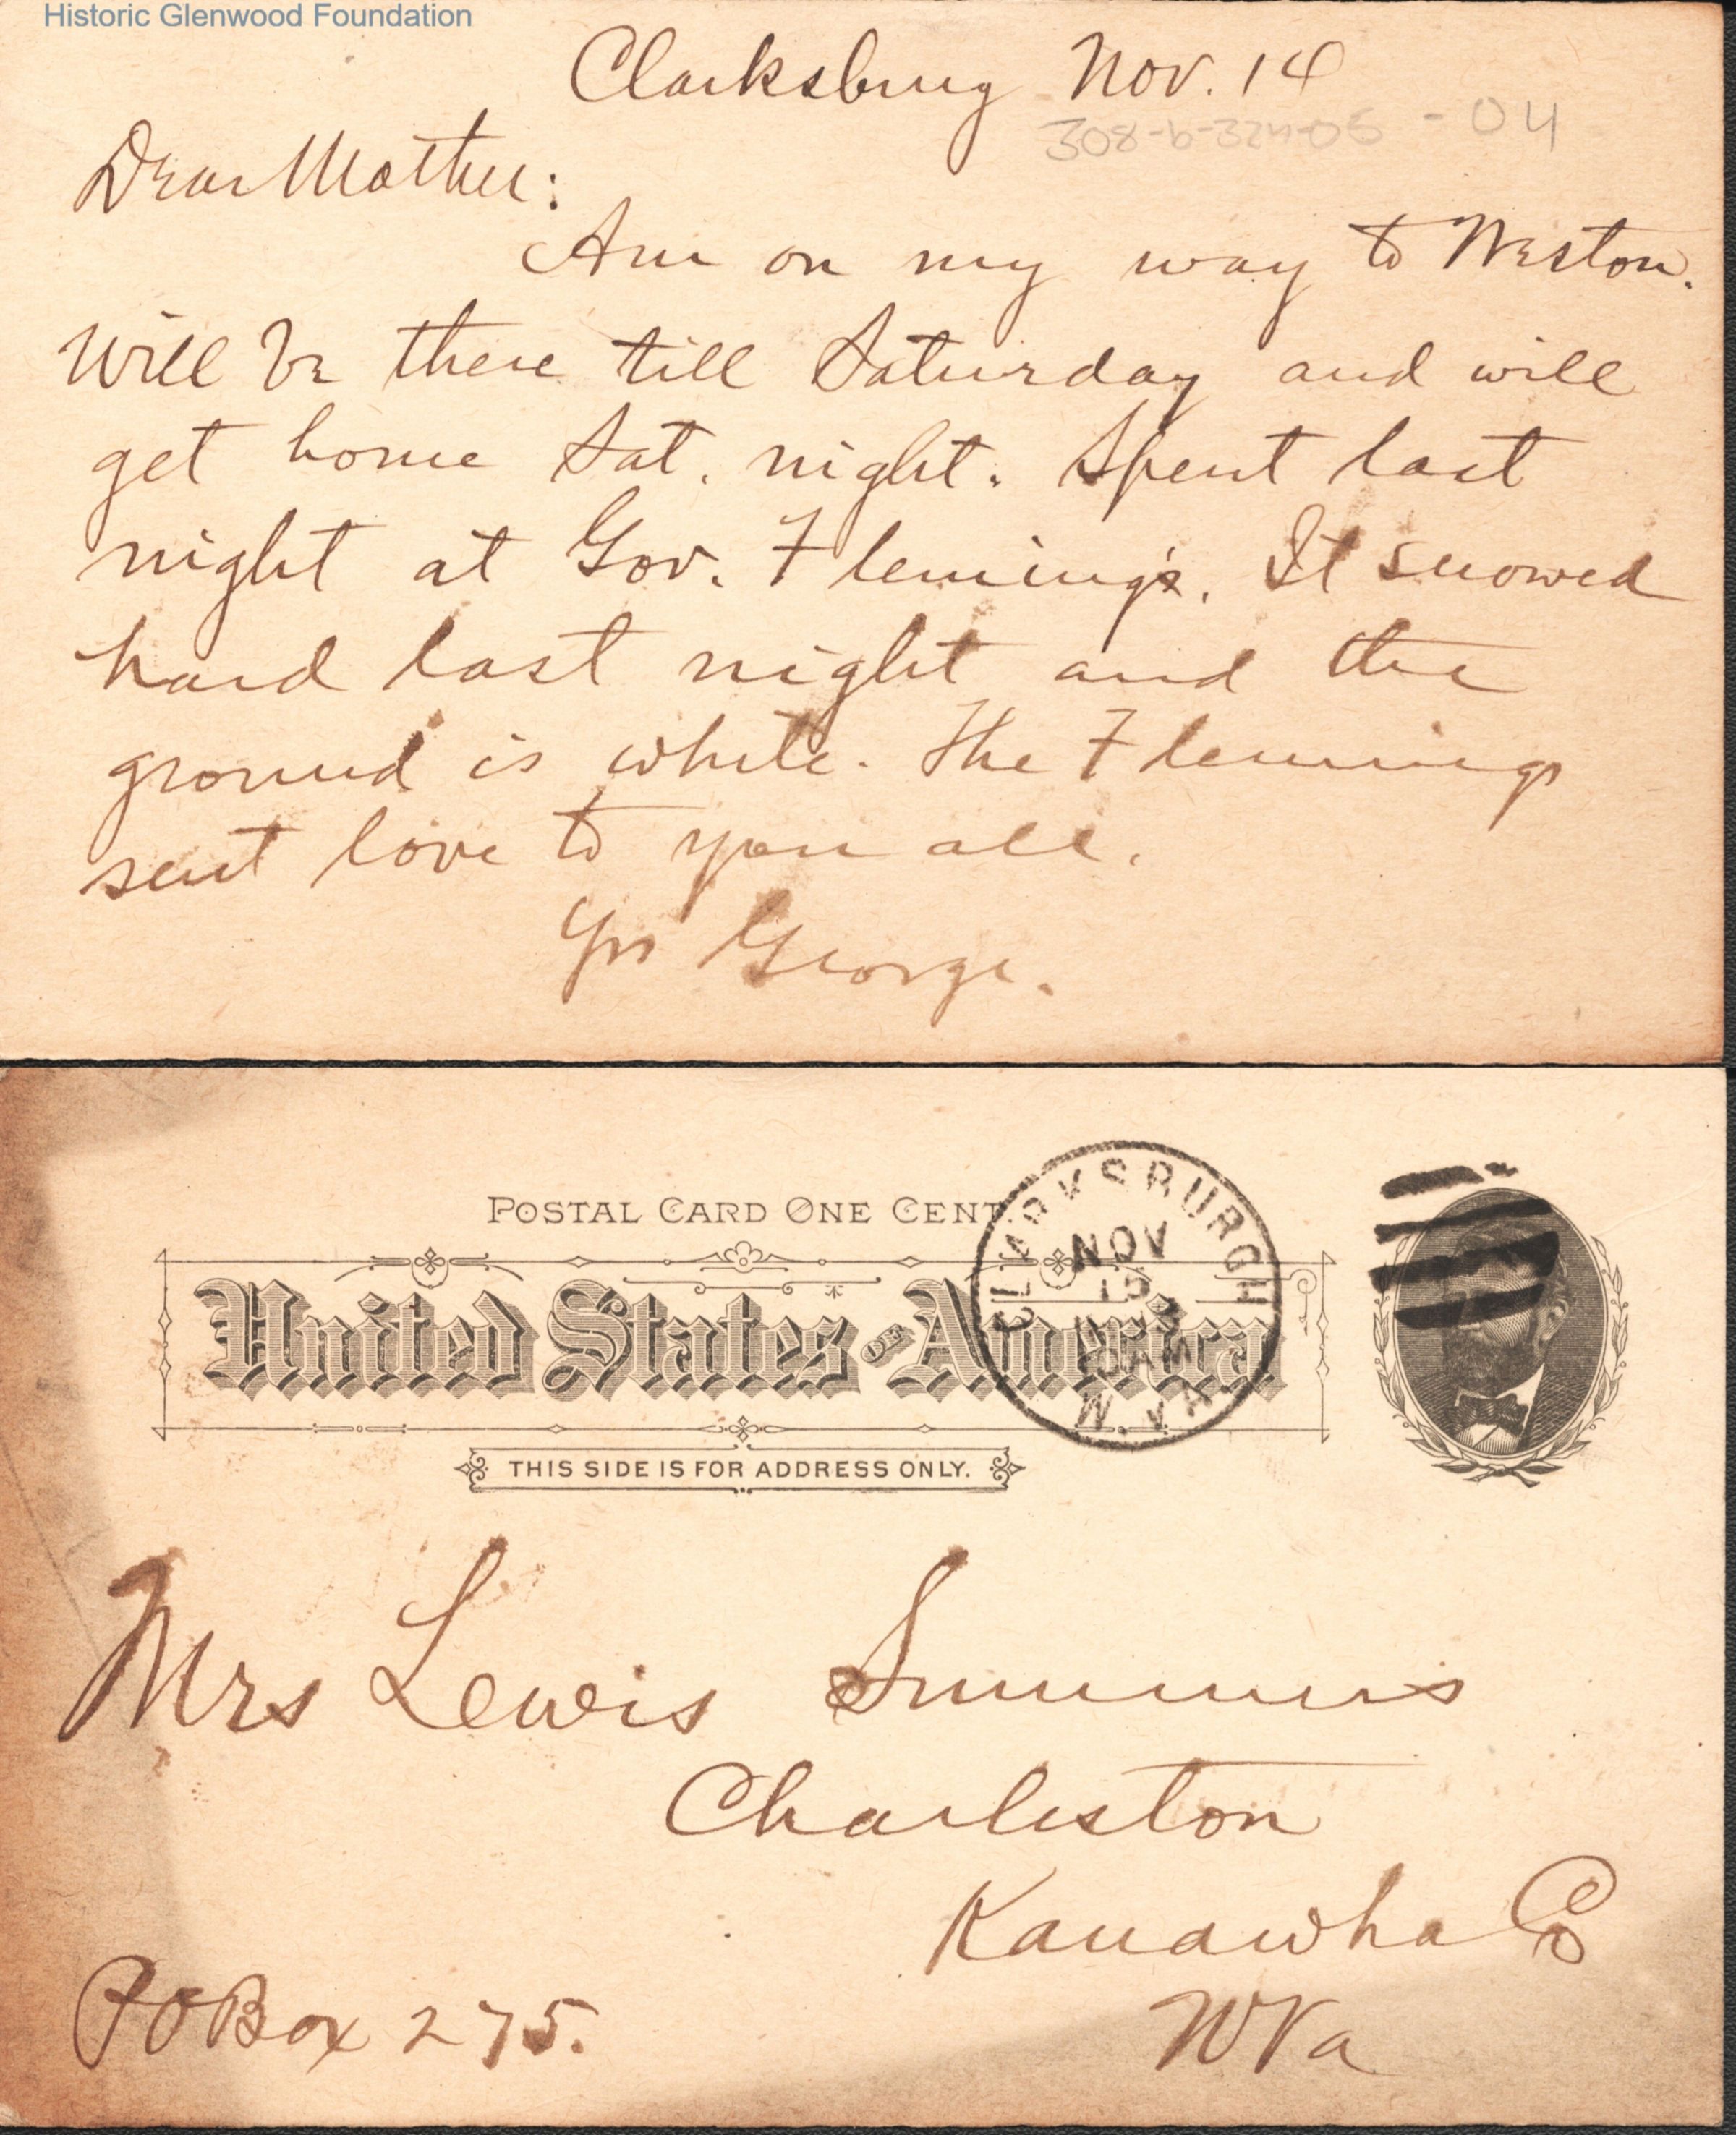 Historic Glenwood Foundation
Clarksburg Nov. 14
308-6-324-05 - 04
Dear Mother:
Am on my way to Weston.
Will be there till Saturday and will
get home Sat. night. Spent last
night at Gov. Fleming's. It snowed
hard last night and the
ground is white. The Flemings
sent love to you all.
Yrs George.
POSTAL CARD ONE CENT.
CLARKSBURGH
NOV
15
W. VA.
United States OF America
THIS SIDE IS FOR ADDRESS ONLY.
Mrs Lewis Summers
Charleston
Kanawha Co
W Va
PO Box 275.